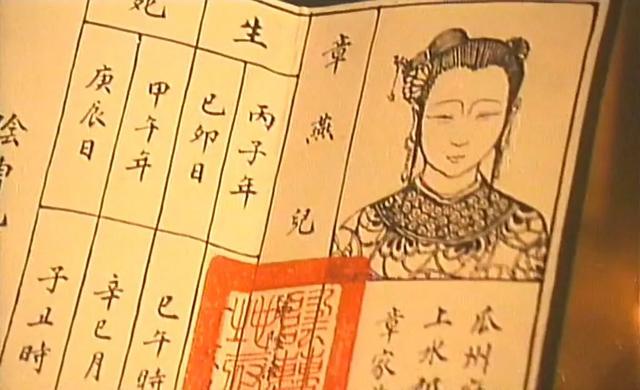 瓜州
上水
章家
章燕兒
生
丙子年
己卯日
巳午時
死
甲午年
庚辰日
辛巳月
子丑時